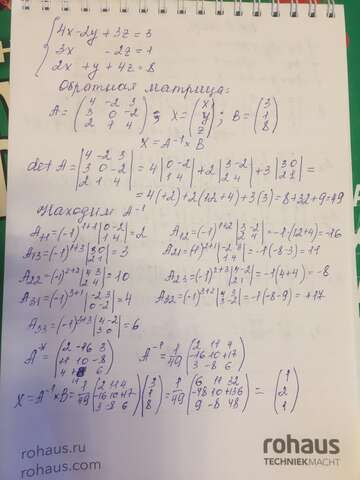 4x-2y+3z=3
3x -2z=1
2x+y+4z=8
Обратная матрица:
A=(4 -2 3; 3 0 -2; 2 1 4); X=(x y z); B=(3 1 8)
X=A⁻¹×B
det A=|4 -2 3; 3 0 -2; 2 1 4|=4|0 -2; 1 4|+2|3 -2; 2 4|+3|3 0; 2 1|=
=4(+2)+2(12+4)+3(3)=8+32+9=49
Находим A⁻¹
A₁₁=(-1)¹⁺¹|0 -2; 1 4|=2 A₁₂=(-1)¹⁺²|3 -2; 2 4|=-1(12+4)=-16
A₁₃=(-1)¹⁺³|3 0; 2 1|=3 A₂₁=(-1)²⁺¹|-2 3; 1 4|=-1(-8-3)=11
A₂₂=(-1)²⁺²|4 3; 2 4|=10 A₂₃=(-1)²⁺³|4 -2; 2 1|=-1(4+4)=-8
A₃₁=(-1)³⁺¹|-2 3; 0 -2|=4 A₃₂=(-1)³⁺²|4 3; 3 -2|=-1(-8-9)=+17
A₃₃=(-1)³⁺³|4 -2; 3 0|=6
A*=(2 -16 3; 11 10 -8; 4 17 6) A⁻¹=1/49(2 11 4; -16 10 +17; 3 -8 6)
X=A⁻¹×B=1/49(2 11 4; -16 10 +17; 3 -8 6)(3 1 8)=1/49(6 11 32; -48 10 +136; 9 -8 48)=(1 2 1)
rohaus.ru
rohaus.ru
rohaus
TECHNIEKMACHT